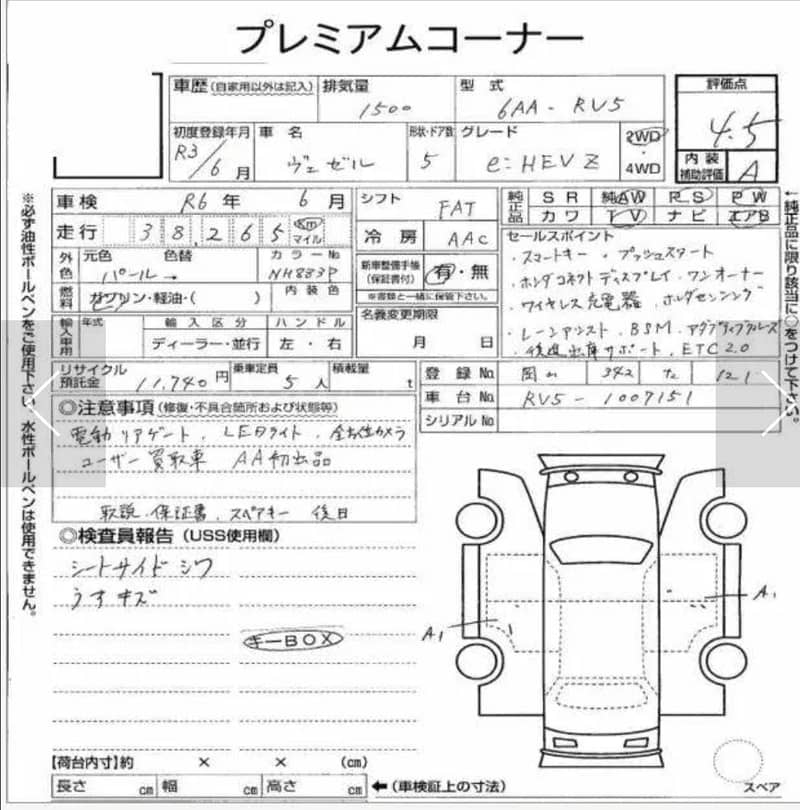 プレミアムコーナー
車歴(自家用以外は記入) 排気量 1500 型式 6AA-RV5 評価点 4.5
初度登録年月 R3/6月 車名 ヴェゼル 形状・ドア数 5 グレード e:HEV Z 2WD・4WD 内装補助評価 A
車検 R6年 6月 シフト FAT 純正品 SR 純AW PS PW
カワ TV ナビ エアB
走行 38,265 Km マイル 冷房 AAC
セールスポイント
・スマートキー ・プッシュスタート
・ホンダコネクトディスプレイ・ワンオーナー
・ワイヤレス充電器・ホンダセンシング
・レーンアシスト・BSM・アダプティブクルーズ
・後退出庫サポート・ETC2.0
外色 元色 パール→ 色替 カラーNo NH883P
新車整備手帳(保証書付) 有・無
※書類と一緒に保管下さい。
燃料 ガソリン・軽油・( ) 内装色
名義変更期限 月 日
輸入車用 年式 輸入区分 ディーラー・並行 ハンドル 左・右
リサイクル預託金 11,740円 乗車定員 5人 積載量 t
登録No 342 121
車台No RV5-1007151
シリアルNo
◎注意事項(修復・不具合箇所および状態等)
電動リアゲート、LEDライト、全方位カメラ
ユーザー買取車 AA初出品
取説・保証書・スペアキー 後日
◎検査員報告(USS使用欄)
シートサイドシワ
うすキズ
キーBOX
A1
A1
【荷台内寸】約 × × (cm)
長さ cm 幅 cm 高さ cm ←(車検証上の寸法)
スペア
※必ず油性ボールペンをご使用下さい。水性ボールペンは使用できません。
←純正品に限り該当に○をつけて下さい。